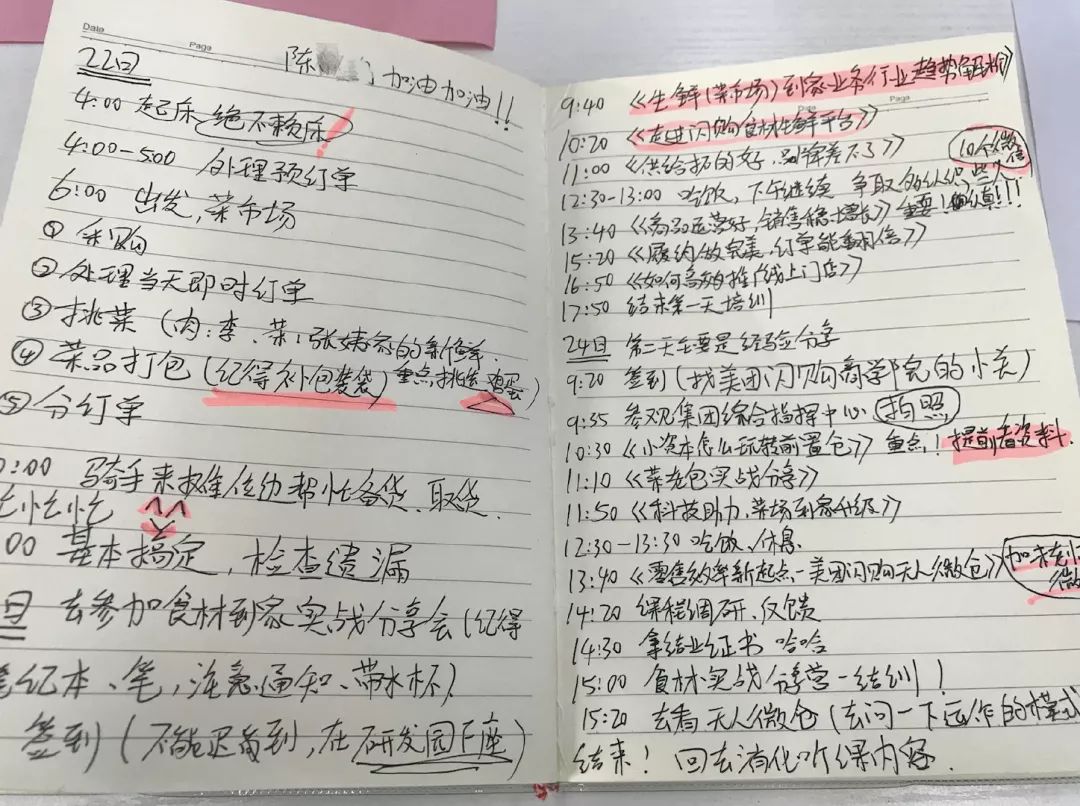 Date
Page
22日
陈 加油加油!!
4:00 起床 绝不赖床!
4:00-5:00 处理预订单
6:00 出发,菜市场
① 采购
② 处理当天即时订单
③ 挑菜 (肉:李、菜:张姨家的新鲜.
重点挑选鸡蛋)
④ 菜品打包 (记得补包装袋)
⑤ 分订单
0:00 骑手来摊位帮忙备货、取货.
忙忙忙
00 基本搞定,检查遗漏
日 去参加食材到家实战分享会 (记得
笔记本、笔,注意通知、带水杯)
签到 (不能迟到,在研发园F座)
Page
9:40 《生鲜(菜市场)到家业务行业趋势解析》
10:20 《走进闪购食材生鲜平台》
11:00 《供给抓的好,别销差不了》
10个微信
12:30-13:00 吃饭,下午继续 争取多认识些人
13:40 《商品运营好,销售稳增长》 重要!认真!!!
15:20 《履约做完美,订单能翻倍》
16:50 《如何高效推广线上门店》
17:50 结束第一天培训
24日 第二天主要是经验分享
9:20 签到 (找美团闪购商学院的小关)
9:35 参观集团综合指挥中心 拍照
10:30 《小资本怎么玩转前置仓》 重点! 提前看资料.
11:10 《菜老包实战分享》
11:50 《科技助力,菜场到家升级》
12:30-13:30 吃饭、休息
13:40 《零售效率新起点-美团闪购无人微仓》
14:20 课程调研、反馈
14:30 拿结业证书 哈哈
15:00 食材实战分享营-结训!
15:20 去看无人微仓 (去问一下运作的模式
结束! 回去消化听课内容.